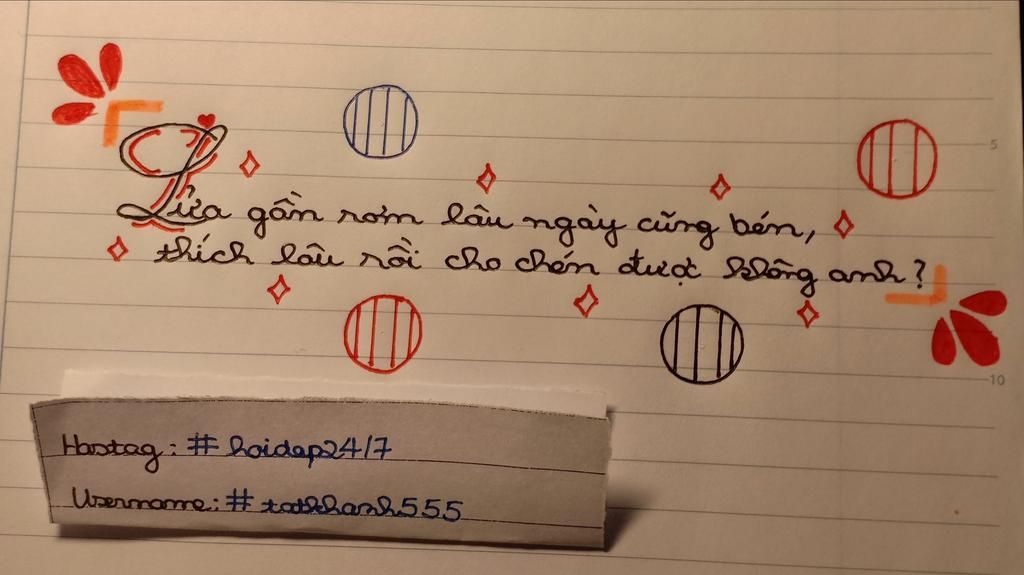 Lửa gần rơm lâu ngày cũng bén,
thích lâu rồi cho chén được không anh?
5
10
Hastag: # hoidap24/7
Username: # tatkhanh555